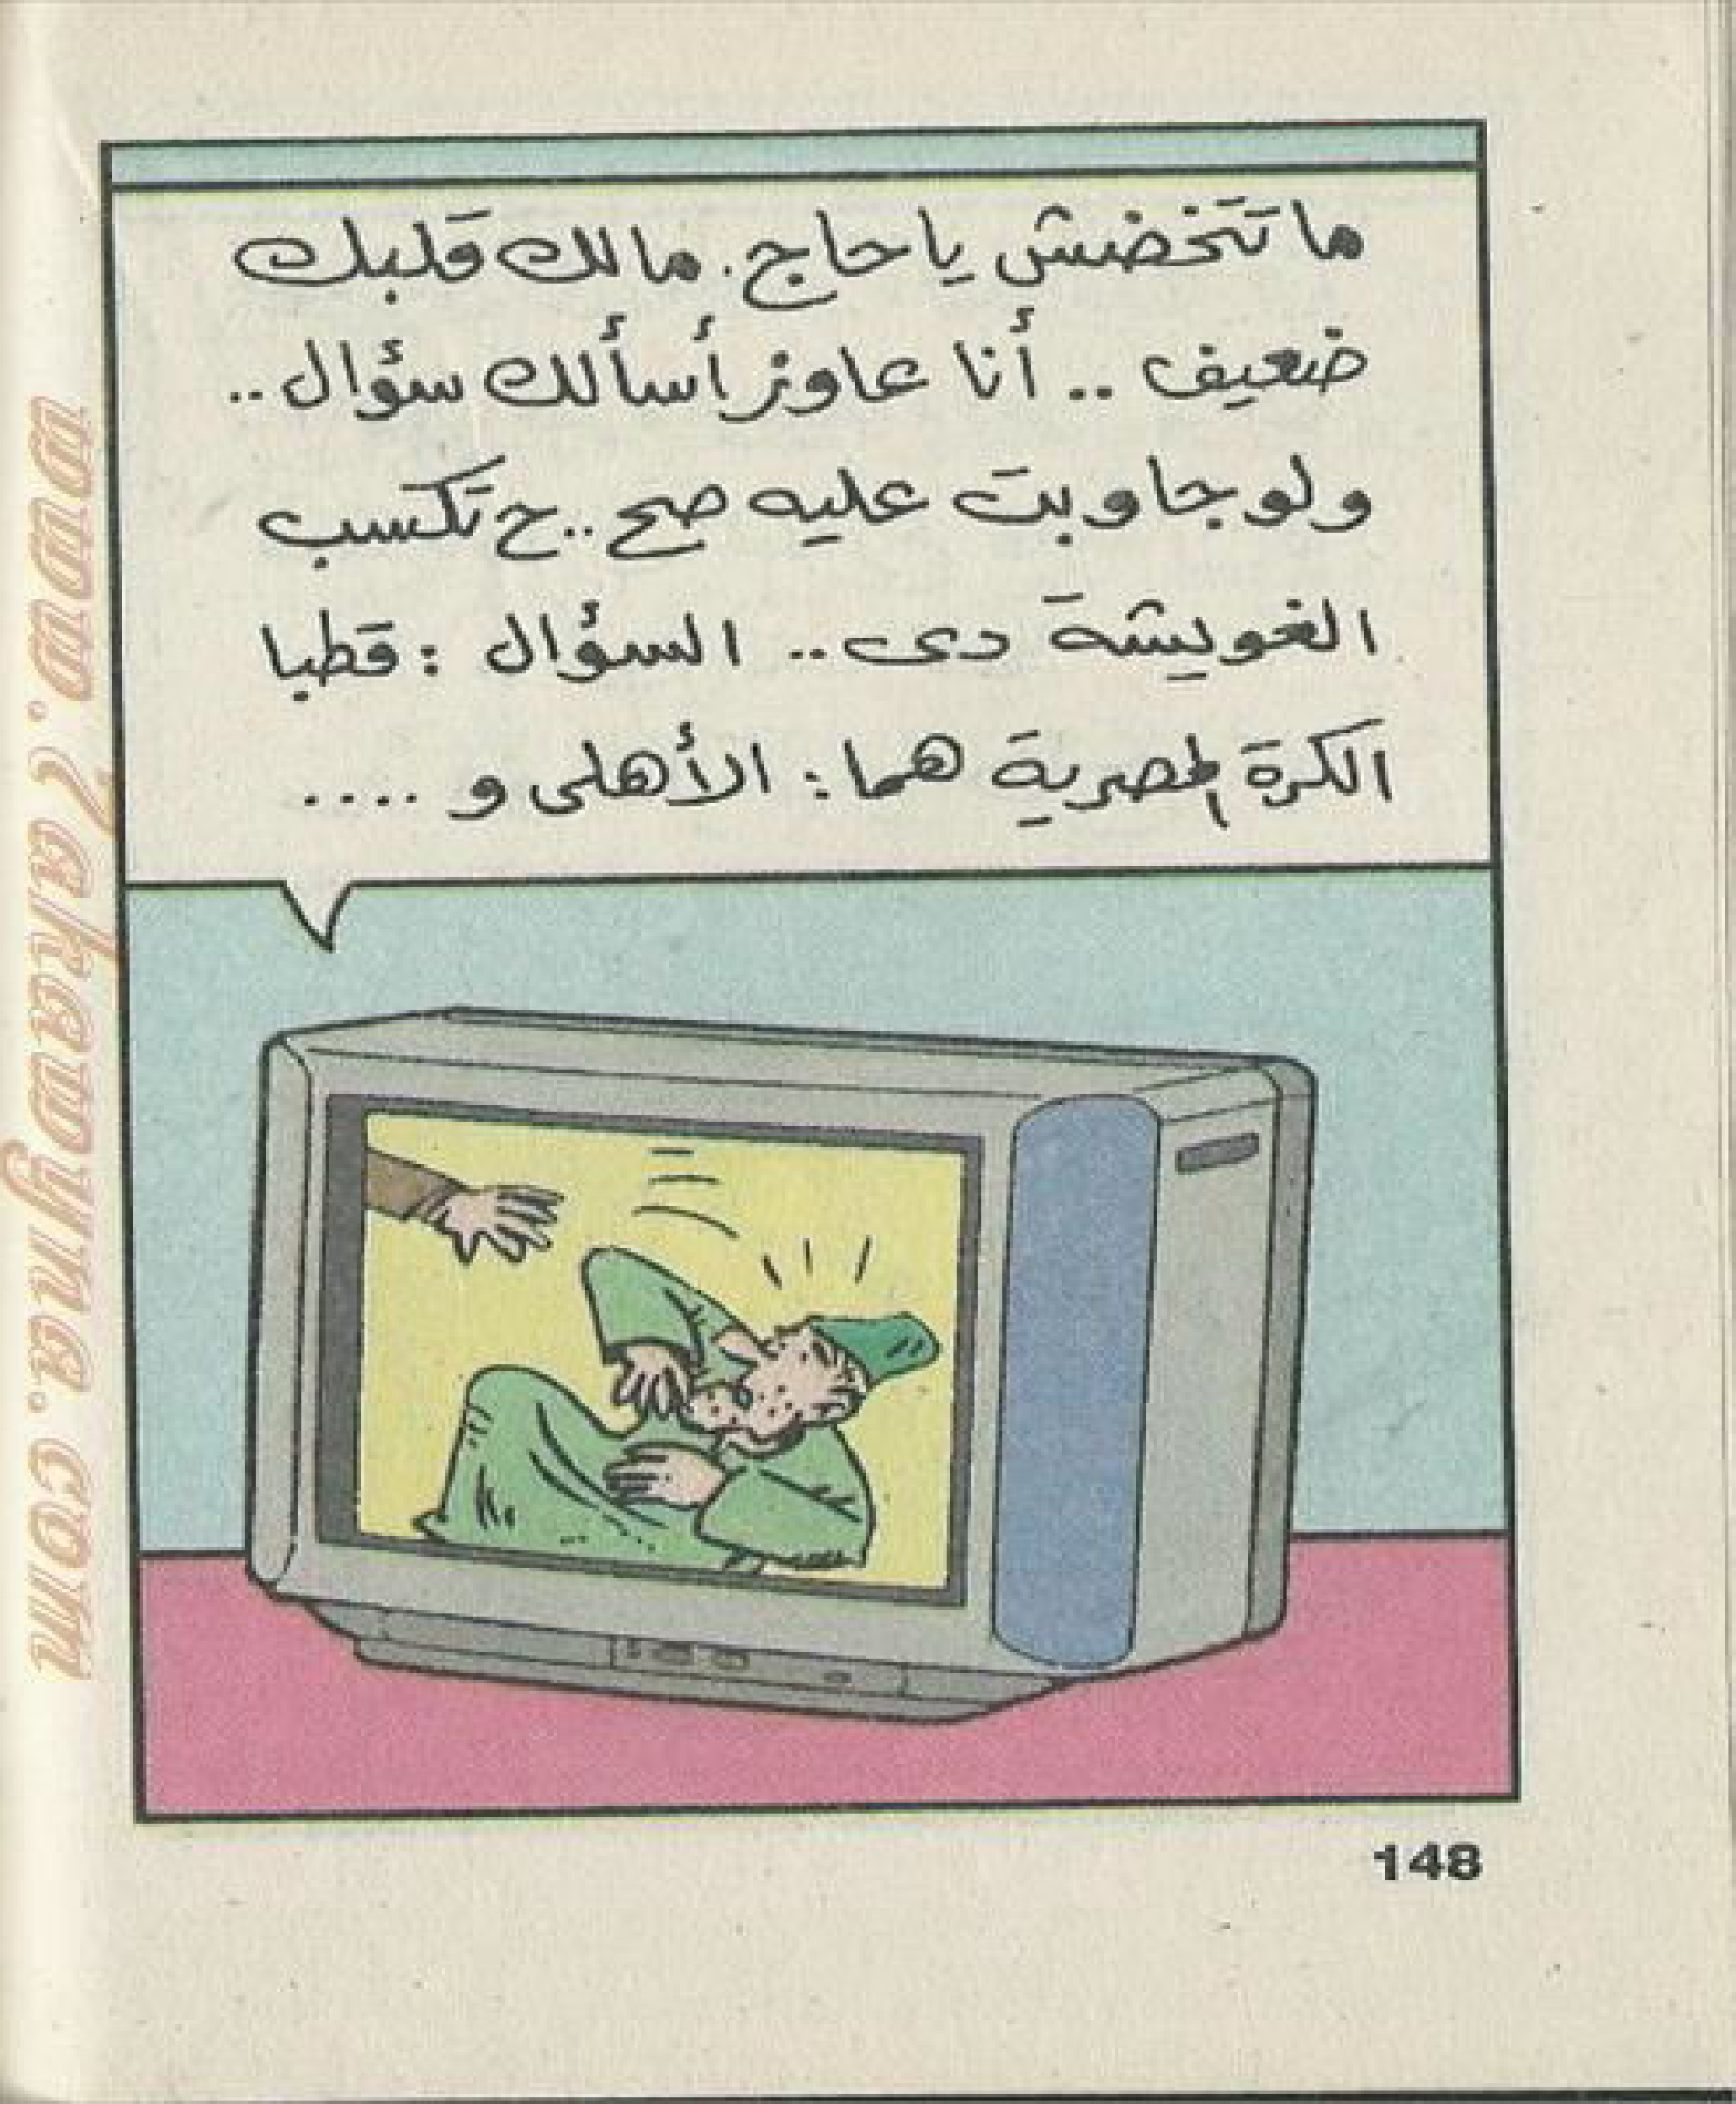 ما تتخضش يا حاج. مالك قلبك
ضعيف .. أنا عاوز أسألك سؤال ..
ولو جاوبت عليه صح .. ح تكسب
الغويشة دى .. السؤال : قطبا
الكرة المصرية هما : الأهلى و ....
148
www.7akawyna.com